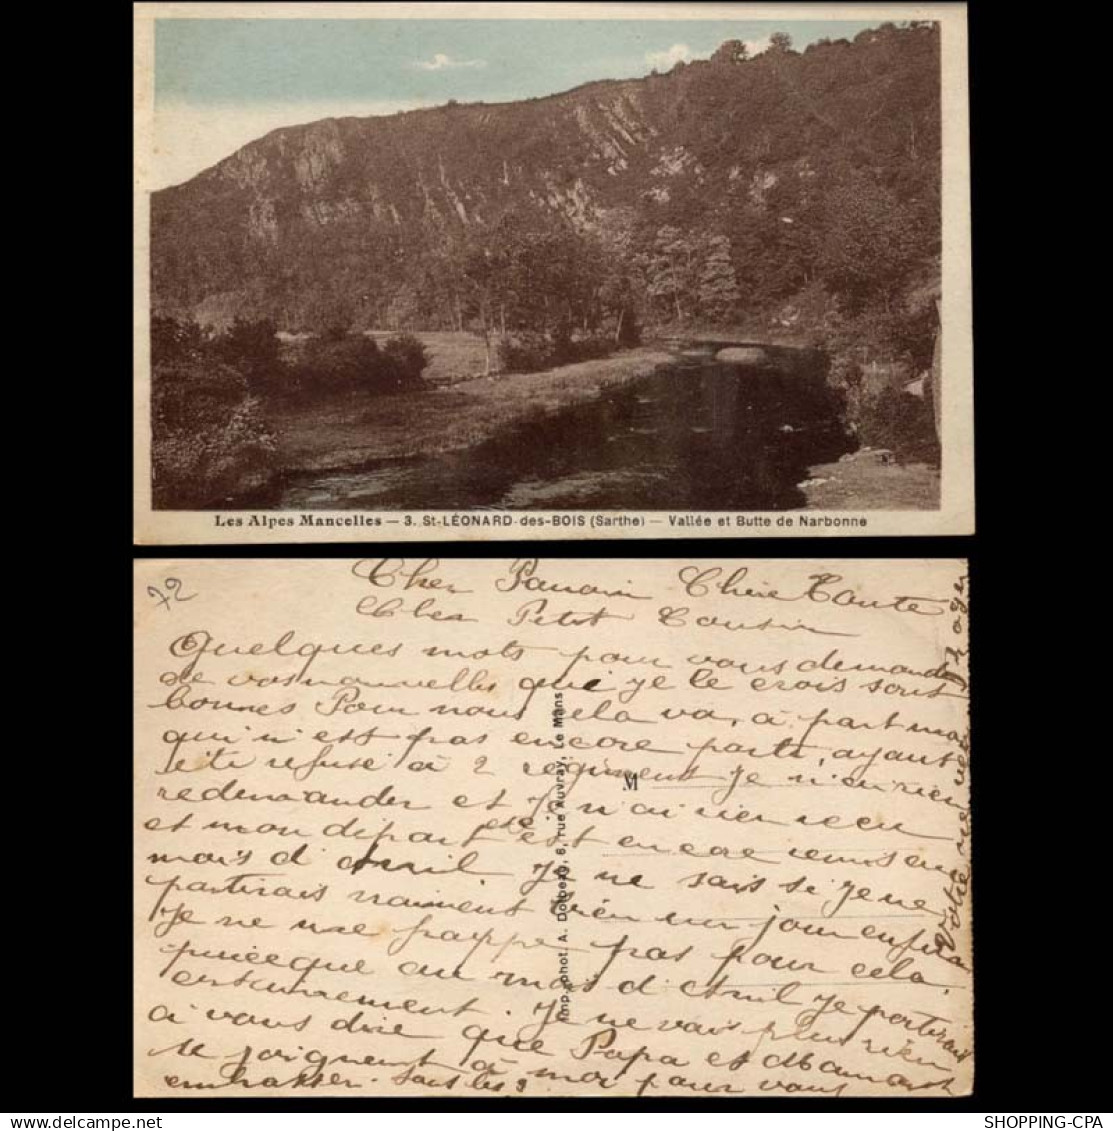 Les Alpes Mancelles — 3. St-LÉONARD-des-BOIS (Sarthe) — Vallée et Butte de Narbonne
72
Cher Parrain Chère Tante
Cher Petit Cousin
Quelques mots pour vous demander
de vos nouvelles qui je le crois sont
bonnes Pour nous cela va, à part moi
qui n'est pas encore parti, ayant
été refusé à 2 régiment je n'en rien
redemander et je n'ai rien reçu
et mon départ est encore remis au
mois d'Avril je ne sais si je ne
partirais vraiment bien un jour enfin
je ne me frappe pas pour cela,
puisque au mois d'Avril je partirais
certainement. Je ne vais plus rien
à vous dire que Papa et Maman
se joignent à moi pour vous
embrasser. tous les 3
Votre neveu Roger
M
Imp. phot. A. Dolbeau, 6, rue Auvray, Le Mans
SHOPPING-CPA